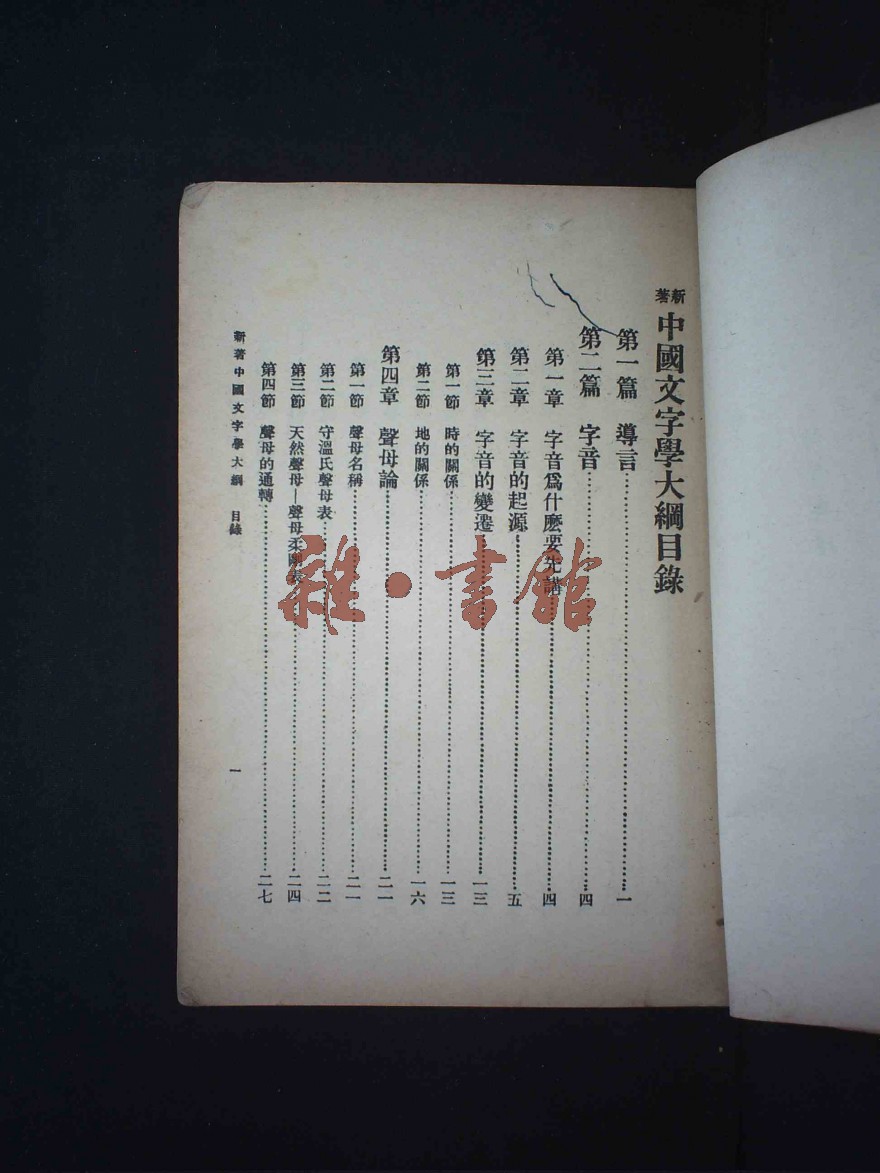 新著中國文字學大綱目錄
第一篇 導言……一
第二篇 字音……四
第一章 字音爲什麽要先講……四
第二章 字音的起源……五
第三章 字音的變遷……一三
第一節 時的關係……一三
第二節 地的關係……一六
第四章 聲母論……二一
第一節 聲母名稱……二一
第二節 守溫氏聲母表……二二
第三節 天然聲母—聲母柔剛表……二四
第四節 聲母的通轉……二七
新著中國文字學大綱 目錄
一
雜·書館